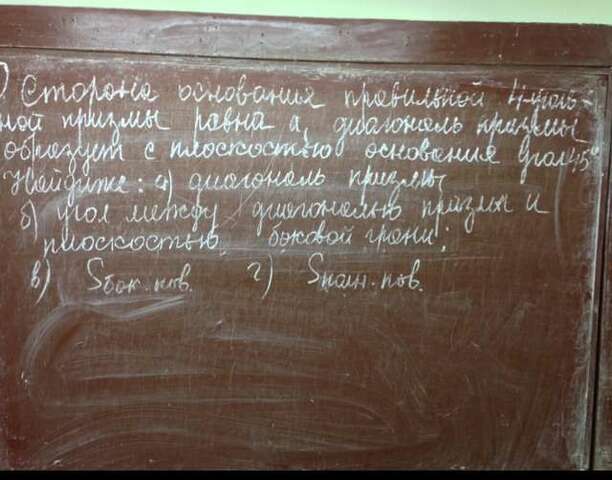 ) Сторона основания правильной 4-уголь-
ной призмы равна а, диагональ призмы
образует с плоскостью основания угол 45°
Найдите: а) диагональ призмы
б) угол между диагональю призмы и
плоскостью боковой грани;
в) Sбок.пов. г) Sполн.пов.